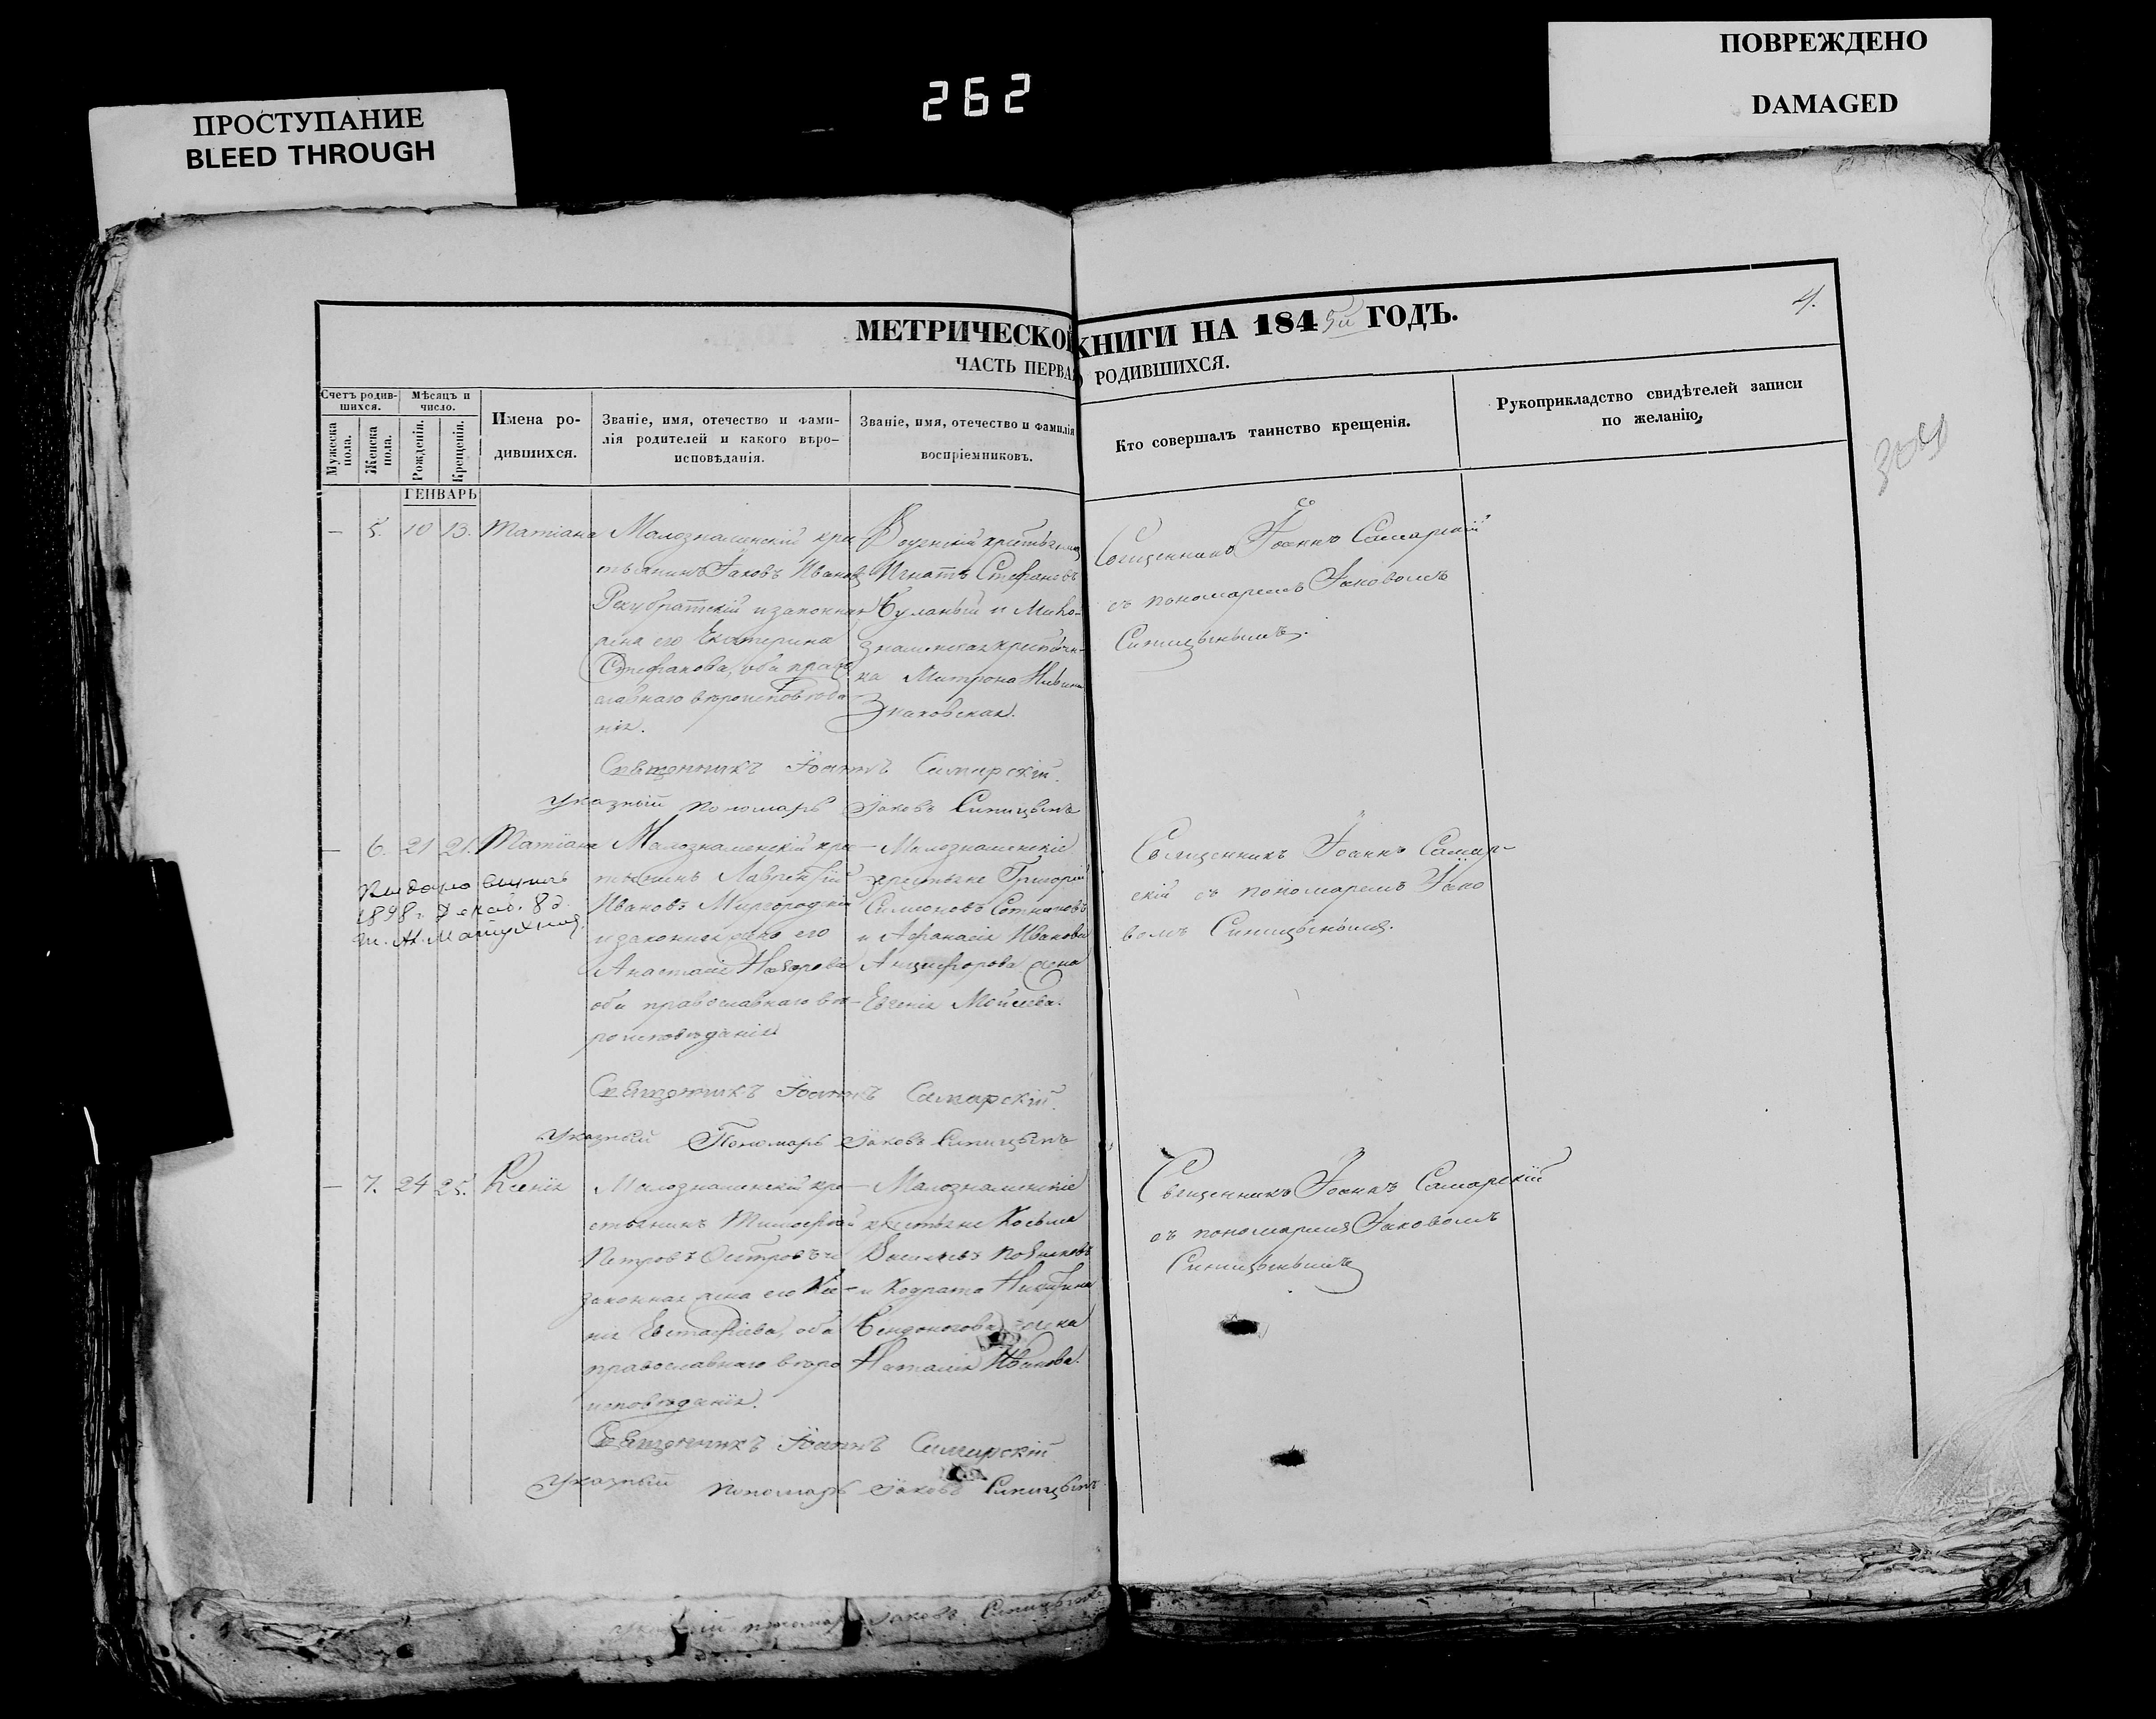 ПОВРЕЖДЕНО
DAMAGED
262
ПРОСТУПАНИЕ
BLEED THROUGH
МЕТРИЧЕСКОЙ КНИГИ НА 1845й ГОДЪ.
4.
ЧАСТЬ ПЕРВАЯ О РОДИВШИХСЯ.
Счетъ родив-шихся.
Мѣсяцъ и число.
Мужеска пола.
Женска пола.
Рожденія.
Крещенія.
Имена ро-
дившихся.
Званіе, имя, отечество и фами-
лія родителей и какого вѣро-
исповѣданія.
Званіе, имя, отечество и фамилія
воспріемниковъ.
Кто совершалъ таинство крещенія.
Рукоприкладство свидѣтелей записи
по желанію,
ГЕНВАРЬ
— 5. 10 13. Татіана
Малознаменскій кре-
стьянинъ Іаковъ Ивановъ
и законная
жена его Екатерина
Стефанова, оба право
славнаго вѣроисповѣда-
нія.
Игнатъ Стефановъ
Буланый и Мало
знаменская крестьян-
ка Матрона
Знаковская.
Священникъ Іоаннъ Самарскій
съ пономаремъ Іаковомъ
Синицынымъ.
Священникъ Іоаннъ Самарскій.
Указный пономарь Іаковъ Синицынъ
— 6. 21 21. Татіана
1898 г. Декаб. 8 д.
Малознаменскій кре-
стьянинъ Лаврентій
Ивановъ Миргородскій
и законная жена его
Анастасія
оба православнаго вѣ-
роисповѣданія
Малознаменскіе
крестьяне Григорій
Симеоновъ Сотниковъ
и Афанасія Иванова
Анциферова жена
Евгенія Моисеева.
Священникъ Іоаннъ Самар-
скій съ пономаремъ Іако
вомъ Синицынымъ.
Священникъ Іоаннъ Самарскій.
Указный Пономарь Іаковъ Синицынъ
— 7. 24 25. Ксенія
Малознаменскій кре-
стьянинъ Тимофей
Петровъ
законная жена его Ксе-
нія Евстафіева, оба
православнаго вѣро
исповѣданія.
Малознаменскіе
крестьяне Косьма
Васильевъ
и Кодрата Никитина
жена
Наталія Иванова.
Священникъ Іоаннъ Самарскій
съ пономаремъ Іаковомъ
Синицынымъ
Священникъ Іоаннъ Самарскій
Указный пономарь Іаковъ Синицынъ
Указный пономарь Іаковъ Синицынъ